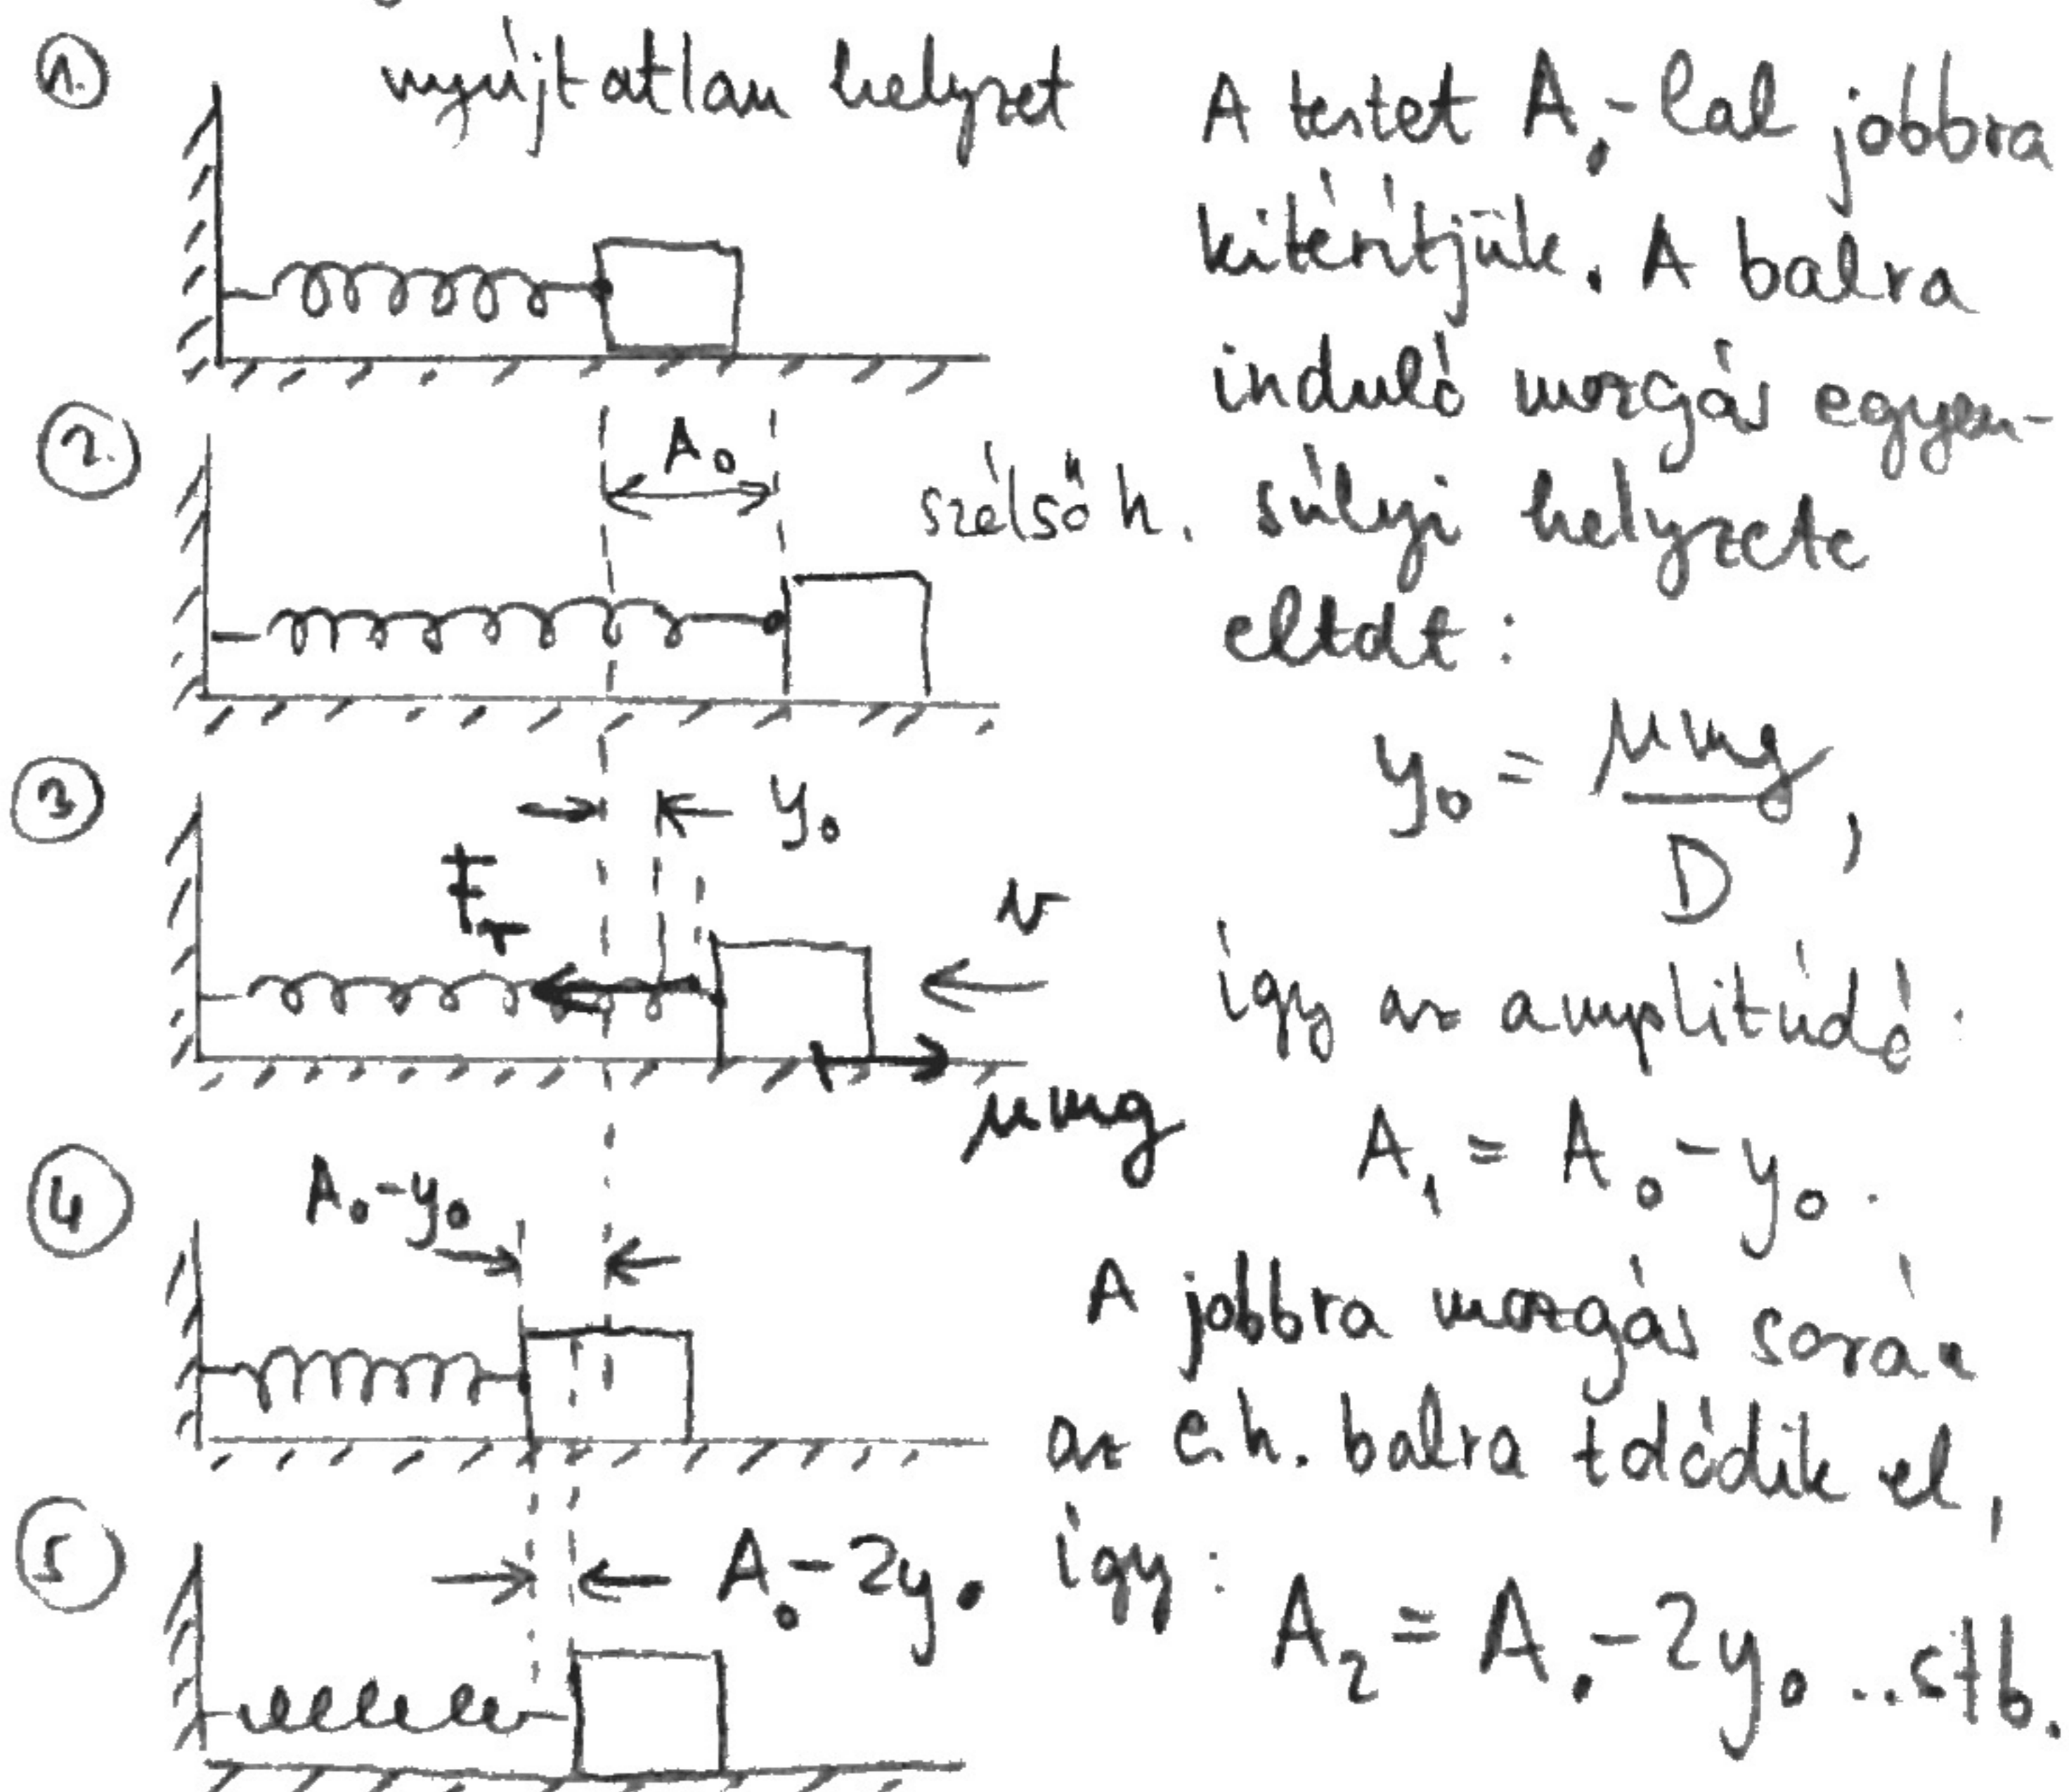 1.
nyújtatlan helyzet
2.
A₀
szélső h.
3
y₀
Fr
v
μmg
4
A₀-y₀
5
A₀-2y₀
A testet A₀-lal jobbra
kitérítjük. A balra
induló mozgás egyen-
súlyi helyzete
eltolt:
y₀ = μmg/D,
így az amplitúdó:
A₁ = A₀-y₀.
A jobbra mozgás során
az e.h. balra tolódik el,
így:
A₂ = A₀-2y₀...stb.